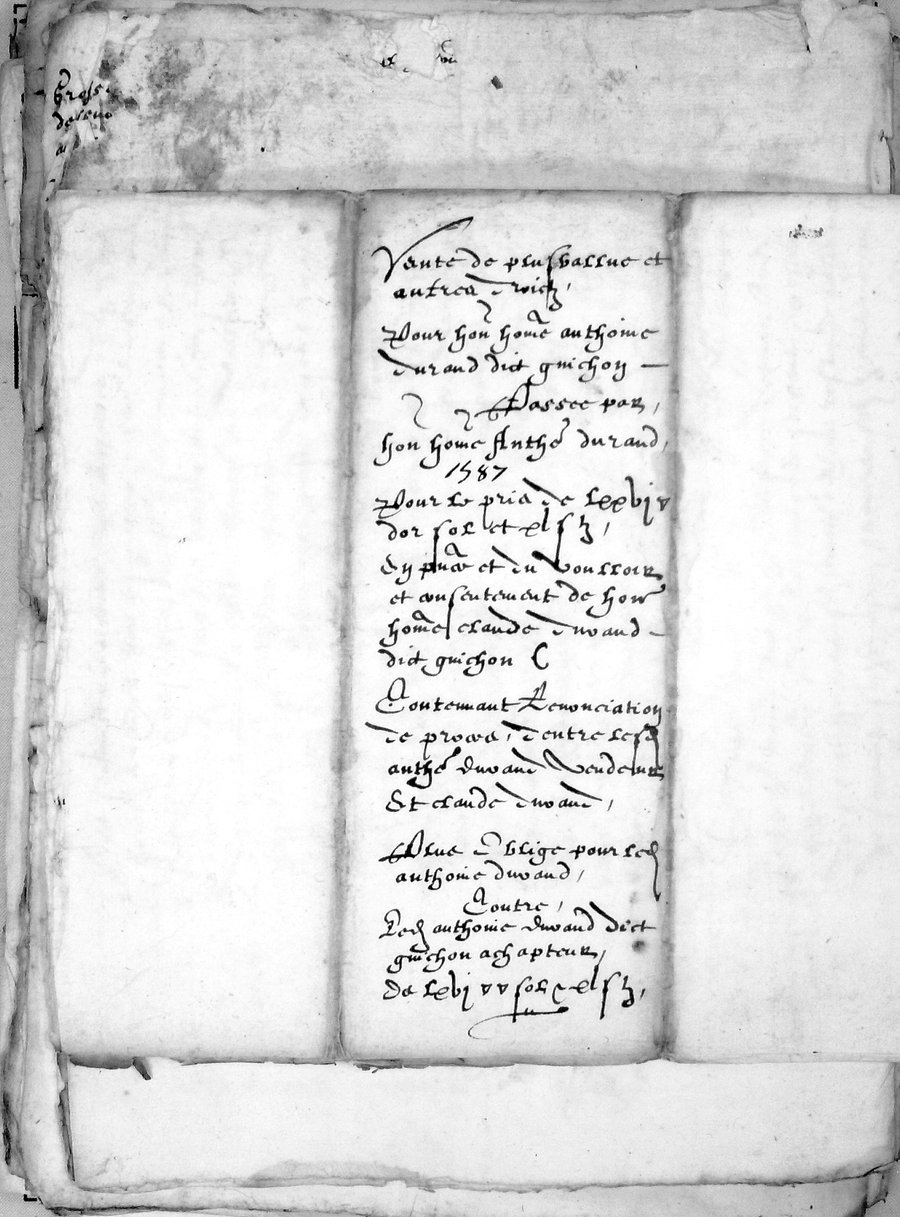 Vente de plusvallue et
autres droictz,
Pour hon home anthoine
durand dict guichon —
Passee par,
hon home Anthe durand,
1587
Pour le pris de lxxvj v
dor sol et xl sz,
En pnce et du voulloir
et consentement de hon
home claude durand —
dict guichon
Contennant Renonciation
de proces, dentre lesd
anthe durand vendeur
Et claude durand,
Plus Oblige pour led
anthoine durand,
Contre,
Led anthoine durand dict
guichon achapteur,
De lxvj vv sol & xl sz,